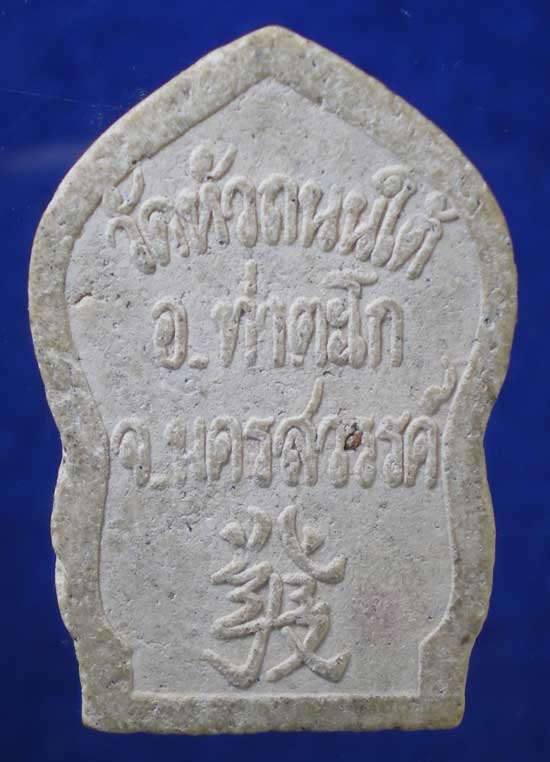 วัดหัวถนนใต้
อ.ท่าตะโก
จ.นครสวรรค์
發